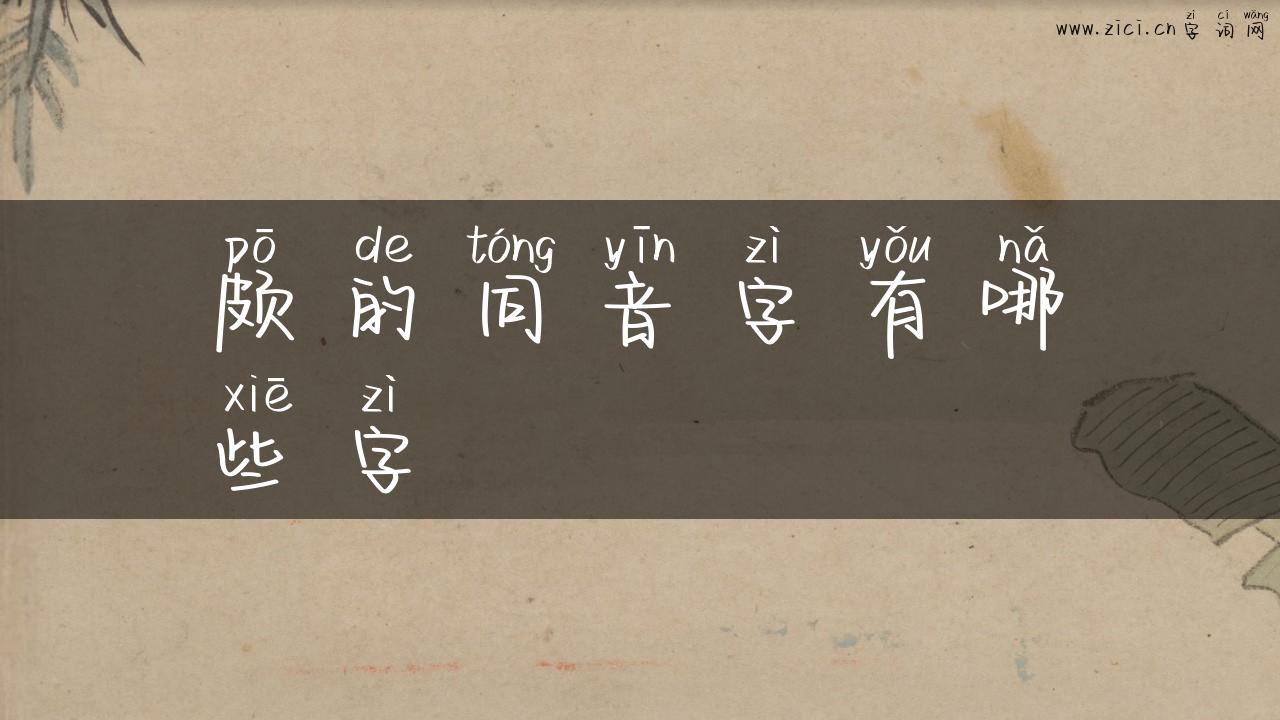 zì cí wǎng
www.zici.cn 字 词 网
pō de tóng yīn zì yǒu nǎ
颇 的 同 音 字 有 哪
xiē zì
些 字